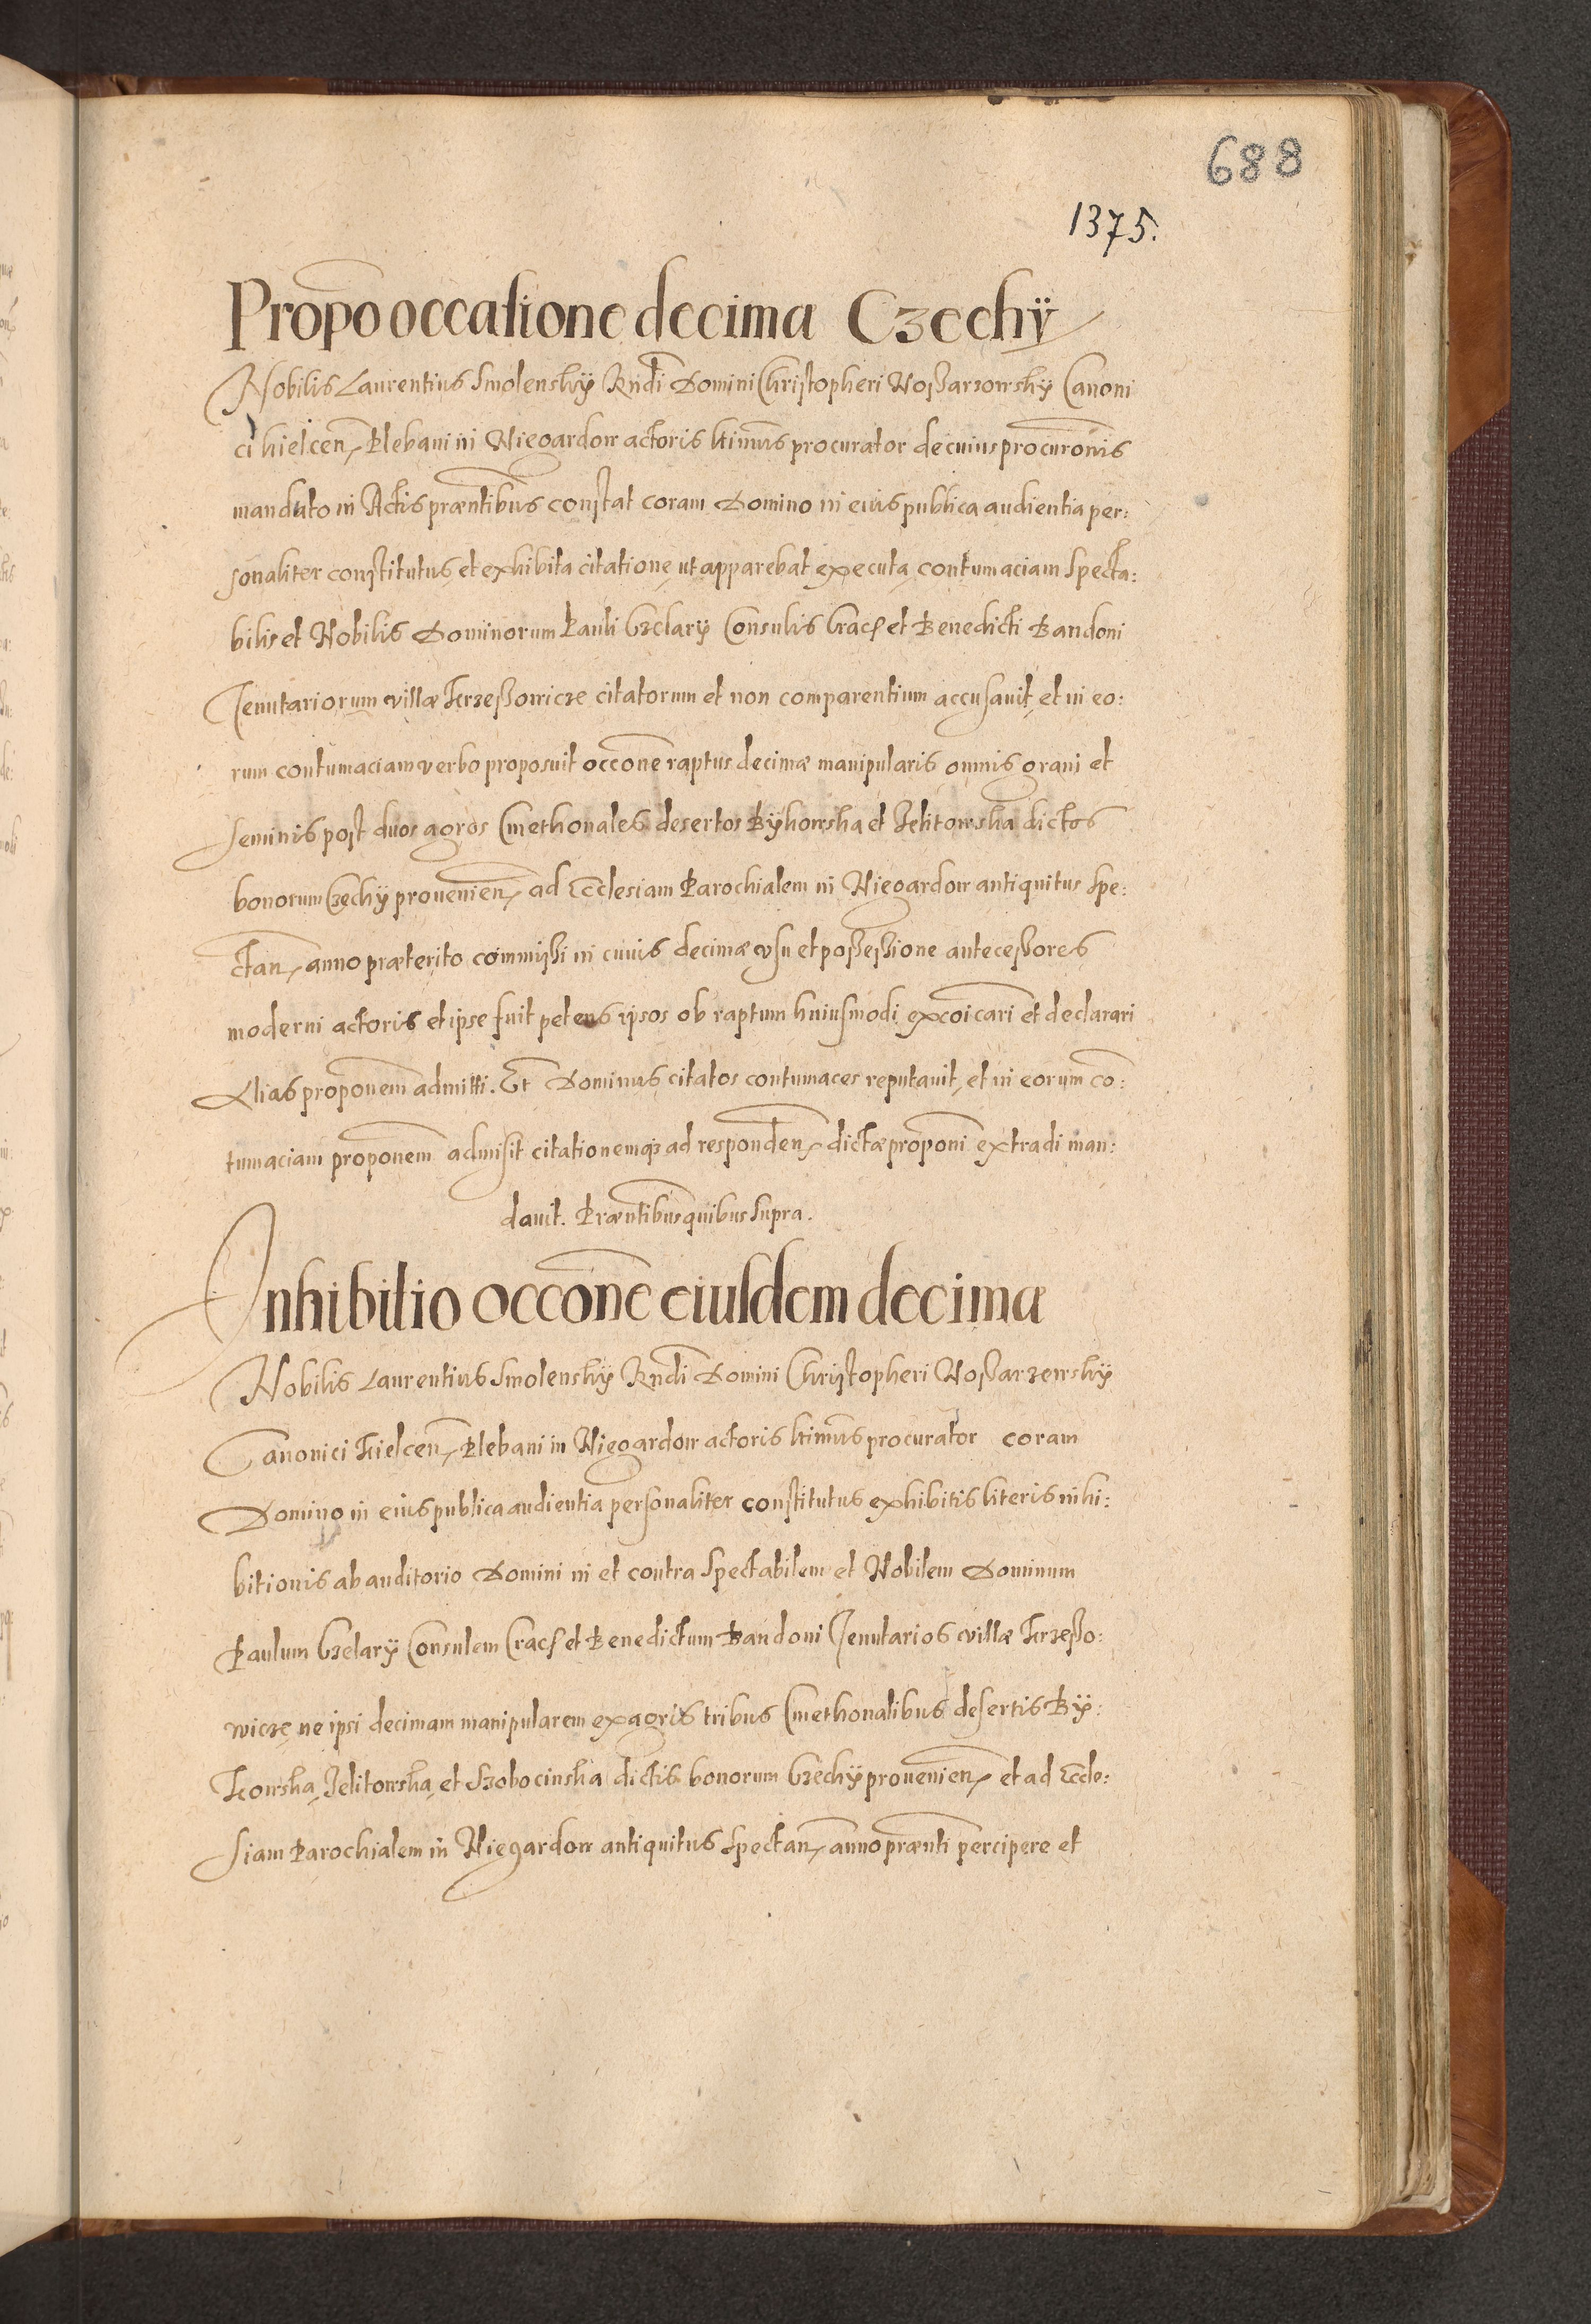 688
1375.
Propo occasione decima Czechÿ
Nobilis Laurentius Smolenskÿ Rndi Domini Christopheri Woßarzowskÿ Canoni
ci kielcen. Plebani in Niegardow actoris ltimus procurator de cuius procuronis
mandato in Actis præntibus constat coram Domino in eius publica audientia per:
sonaliter constitutus et exhibita citatione ut apparebat executa contumaciam Specta:
bilis et Nobilis Dominorum Pauli Czelarÿ Consulis Crac. et Benedicti Bandoni
Tenutariorum villæ Krzeßowicze citatorum et non comparentium accusavit, et in eo:
rum contumaciam verbo proposuit occone raptus decimæ manipularis omnis grani et
seminis post duos agros Cmethonales desertos Bÿkowska et Jelitowska dictos
bonorum Czechÿ provenien. ad Ecclesiam Parochialem in Niegardow antiquitus spe:
ctan. anno præterito commissi in cuius decimæ usu et poßeßione anteceßores
moderni actoris et ipse fuit petens ipsos ob raptum huiusmodi excoicari et declarari
Alias proponem admitti. Et Dominus citatos contumaces reputavit, et in eorum co:
tumaciam proponem admisit citationemq3 ad responden. dictæ proponi extradi man:
davit. Præntibus quibus supra.
Inhibitio occone eiusdem decima
Nobilis Laurentius Smolenskÿ Rndi Domini Christopheri Woßarzewskÿ
Canonici Kielcen. Plebani in Niegardow actoris ltimus procurator coram
Domino in eius publica audientia personaliter constitutus exhibitis literis inhi:
bitionis ab auditorio Domini in et contra Spectabilem et Nobilem Dominum
Paulum Czelarÿ Consulem Crac. et Benedictum Bandoni Tenutarios villæ Krzeßo:
wicze ne ipsi decimam manipularem ex agris tribus Cmethonalibus desertis Bÿ:
kowska, Jelitowska, et Szobocinska dictis bonorum Czechÿ provenien. et ad Eccle:
siam Parochialem in Niegardow antiquitus spectan. anno prænti percipere et